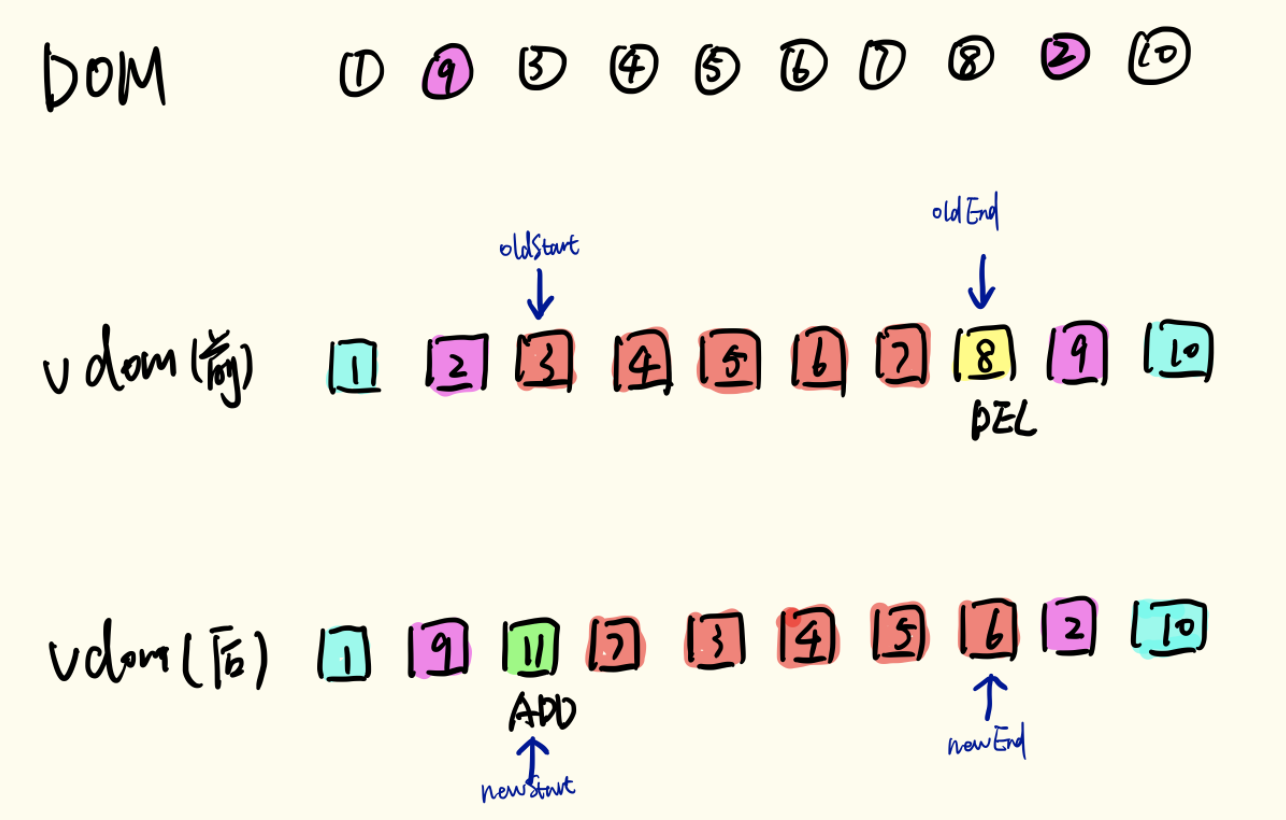 DOM ① ⑨ ③ ④ ⑤ ⑥ ⑦ ⑧ ② ⑩
oldStart
oldEnd
vdom(前) 1 2 3 4 5 6 7 8 9 10
DEL
vdom(后) 1 9 11 7 3 4 5 6 2 10
ADD
newStart
newEnd